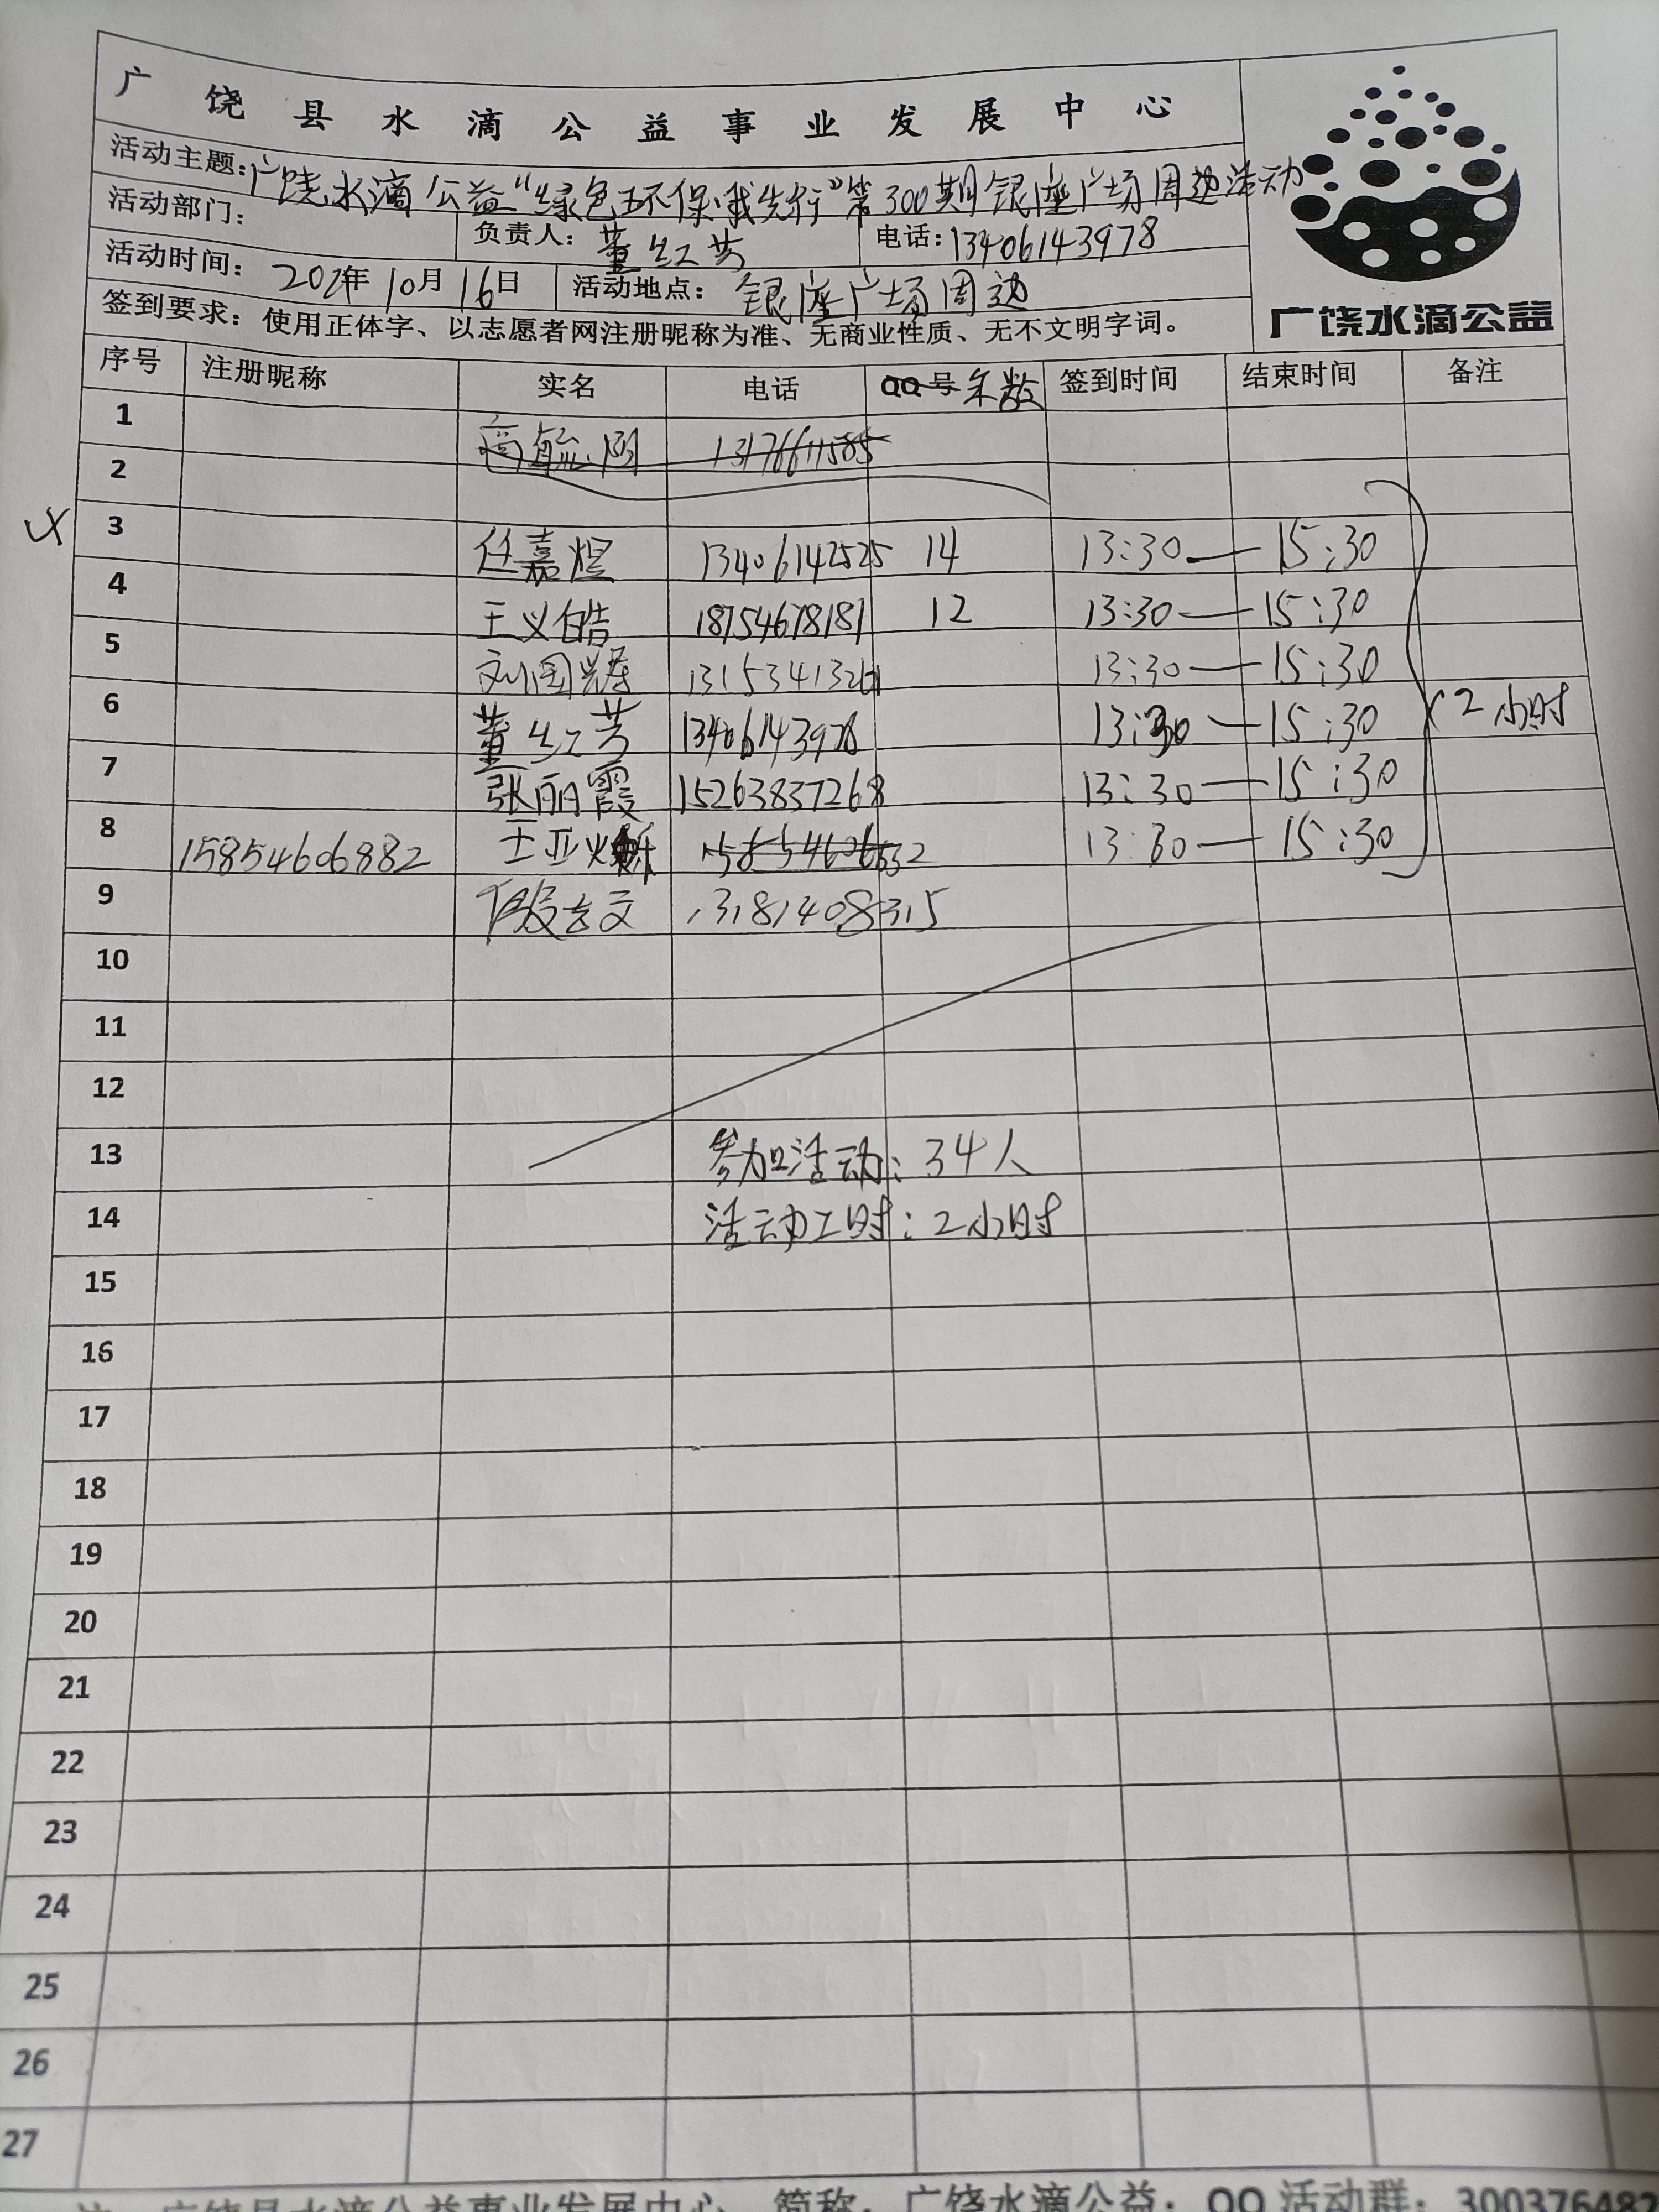 广饶县水滴公益事业发展中心
活动主题：广饶水滴公益“绿色环保·我先行”第300期银座广场周边活动
活动部门： 负责人：董红芳 电话：13406143978
活动时间：202年10月16日 活动地点：银座广场周边
签到要求：使用正体字、以志愿者网注册昵称为准、无商业性质、无不文明字词。
广饶水滴公益
序号 注册昵称 实名 电话 QQ号 年数 签到时间 结束时间 备注
1
2
3 任嘉煜 13406142525 14 13:30—15:30
4 王义皓 18754678187 12 13:30—15:30
5 刘国 13:30—15:30
6 董红芳 13406143978 13:30—15:30 2小时
7 张丽霞 15263837268 13:30—15:30
8 15854606882 王亚 13:30—15:30
9 13181408315
10
11
12
13 参加活动：34人
14 活动工时：2小时
15
16
17
18
19
20
21
22
23
24
25
26
27
注 广饶县水滴公益事业发展中心 简称：广饶水滴公益；QQ活动群：300376482